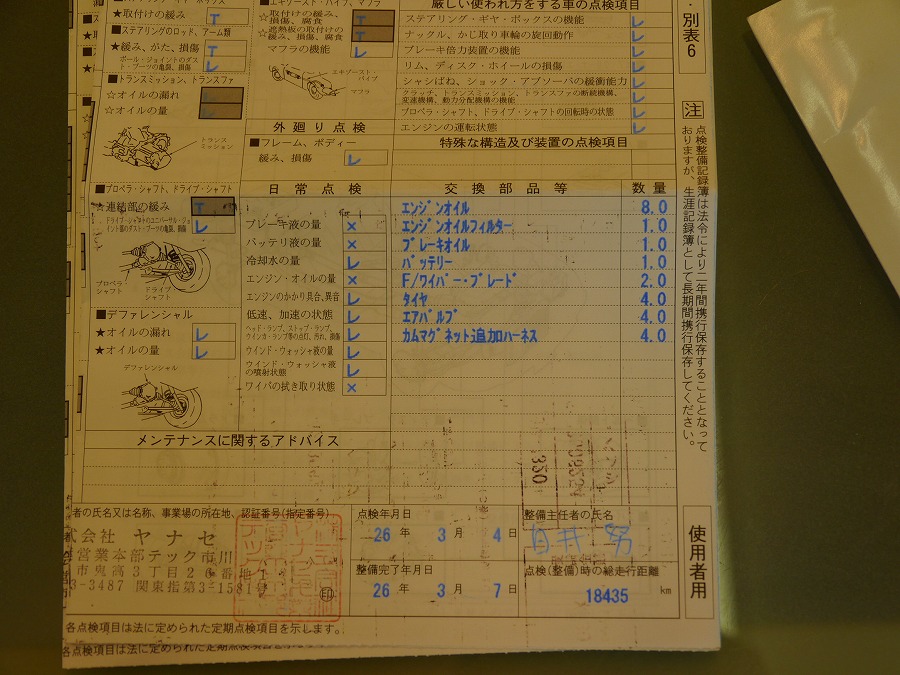 ★取付けの緩み T
■ステアリングのロッド、アーム類
★緩み、がた、損傷 T
ボール・ジョイントのダスト・ブーツの亀裂、損傷 レ
■トランスミッション、トランスファ
☆オイルの漏れ
☆オイルの量
トランスミッション
■プロペラ・シャフト、ドライブ・シャフト
★連結部の緩み T
ドライブ・シャフトのユニバーサル・ジョイント部のダスト・ブーツの亀裂、損傷 レ
プロペラシャフト
ドライブシャフト
■デファレンシャル
★オイルの漏れ レ
★オイルの量 レ
デファレンシャル
■エキゾースト・パイプ、マフラ
☆取付けの緩み、損傷、腐食 T
☆遮熱板の取付けの緩み、損傷、腐食 T
マフラの機能 レ
エキゾースト・パイプ
マフラ
外廻り点検
■フレーム、ボディー
緩み、損傷 レ
日常点検
ブレーキ液の量 ×
バッテリ液の量 ×
冷却水の量 レ
エンジン・オイルの量 ×
エンジンのかかり具合、異音 レ
低速、加速の状態 レ
ヘッド・ランプ、ストップ・ランプ、ウインカ・ランプ等の点灯、汚れ、損傷 レ
ウインド・ウォッシャ液の量 レ
ウインド・ウォッシャ液の噴射状態 レ
ワイパの拭き取り状態 ×
厳しい使われ方をする車の点検項目
ステアリング・ギヤ・ボックスの機能 レ
ナックル、かじ取り車輪の旋回動作 レ
ブレーキ倍力装置の機能 レ
リム、ディスク・ホイールの損傷 レ
シャシばね、ショック・アブソーバの緩衝能力 レ
クラッチ、トランスミッション、トランスファの断続機構、変速機構、動力分配機構の機能 レ
プロペラ・シャフト、ドライブ・シャフトの回転時の状態 レ
エンジンの運転状態 レ
特殊な構造及び装置の点検項目
交換部品等 数量
エンジンオイル 8.0
エンジンオイルフィルター 1.0
ブレーキオイル 1.0
バッテリー 1.0
F/ワイパー・ブレード 2.0
タイヤ 4.0
エアバルブ 4.0
カムマグネット追加ハーネス 4.0
メンテナンスに関するアドバイス
350
者の氏名又は名称、事業場の所在地、認証番号(指定番号)
式会社 ヤナセ
営業本部テック市川
市鬼高3丁目2
3-3487 関東指第3-1581号
印
点検年月日
26年 3月 4日
整備完了年月日
26年 3月 7日
整備主任者の氏名
点検(整備)時の総走行距離
18435 km
各点検項目は法に定められた定期点検項目を示します。
各点検項目は法に定められた定期点検項目
別表6
注
点検整備記録簿は法令により二年間携行保存することとなっておりますが、生涯記録簿として長期間携行保存してください。
使用者用